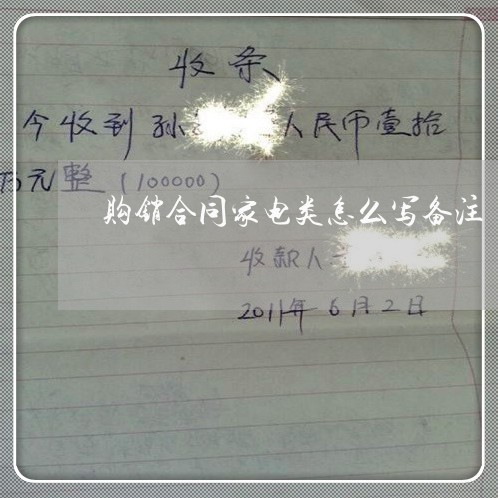 收条
今收到孙 人民币壹拾
万元整(100000)
购销合同家电类怎么写备注
收款人
2011年6月2日